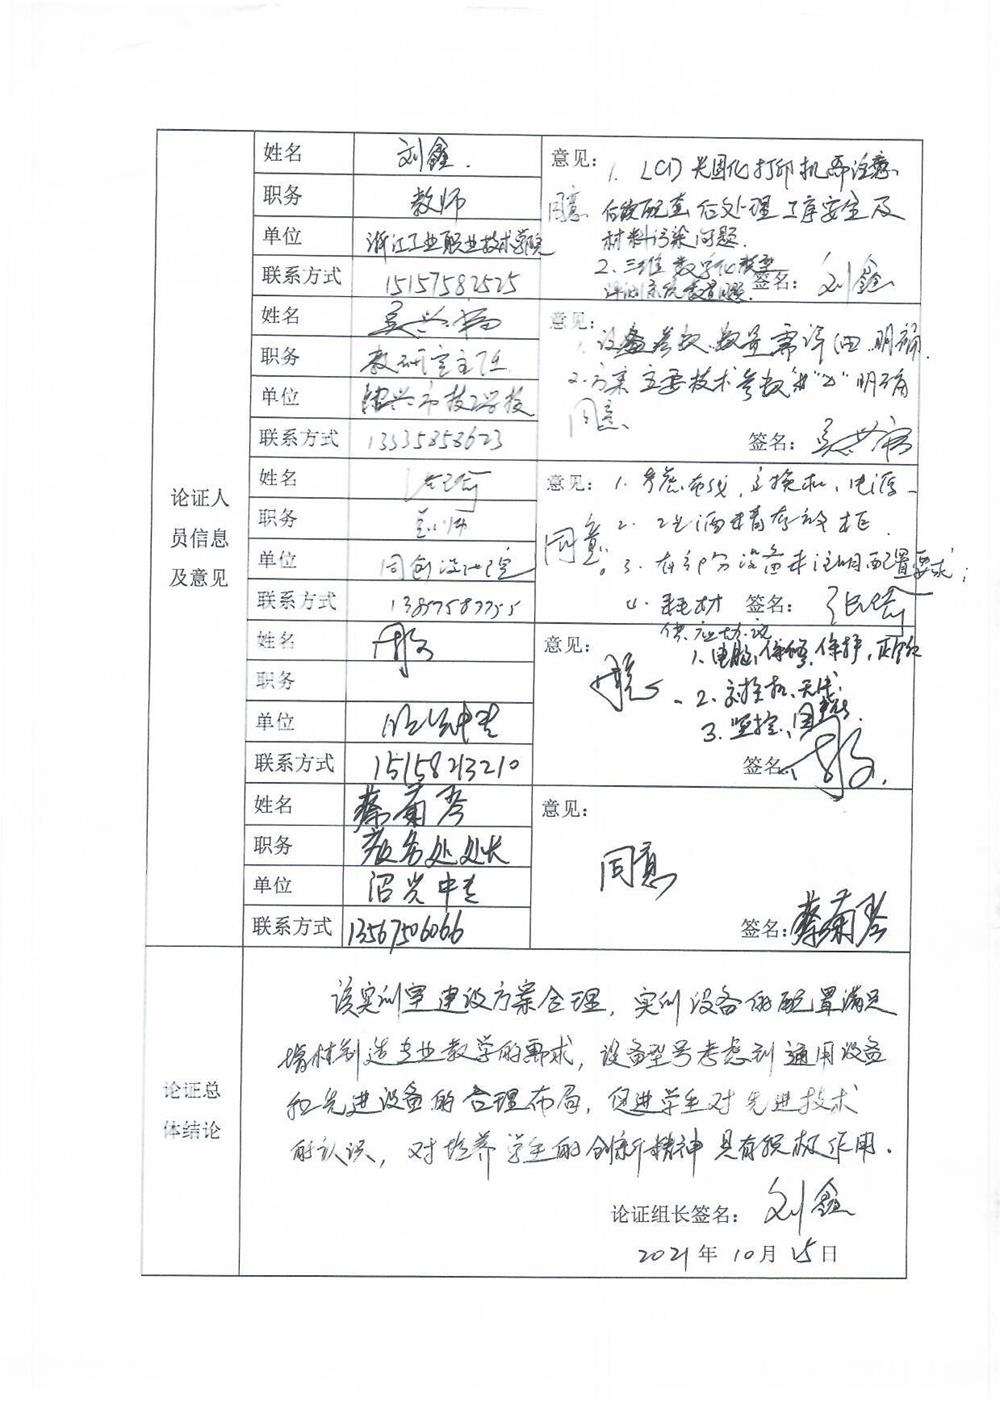 姓名 刘鑫.
职务 教师
单位 浙江工业职业技术学院
联系方式 15157582525
意见:
1. LCD 光固化打印机需注意
同意 后续配套后处理工序安全及
材料污染问题.
2. 三维数字化
签名: 刘鑫
姓名
职务 教研室主任
单位 绍兴市技工学校
联系方式 13335858623
意见:
1. 设备参数、数量需详细、明确.
2. 方案主要技术参数 明确
同意、
签名:
论证人
员信息
及意见
姓名
职务
单位 同创设计院
联系方式
意见: 1. 考虑布线, 交换机, 电源
同意。 2.
3. 在部分设备未注明配置要求;
4. 耗材
供应协议
签名:
姓名
职务
单位
联系方式 15158213210
意见:
1. 电脑,
2. 交换机、
3. 监控、
签名
姓名 蔡菊琴
职务 教务处处长
单位 绍兴中专
联系方式 13567506066
意见:
同意
签名: 蔡菊琴
论证总
体结论
该实训室建设方案合理, 实训设备的配置满足
增材制造专业教学的需求, 设备型号考虑到通用设备
和先进设备的合理布局, 促进学生对先进技术
的认识, 对培养学生的创新精神具有积极作用.
论证组长签名: 刘鑫
2021 年 10 月 25 日